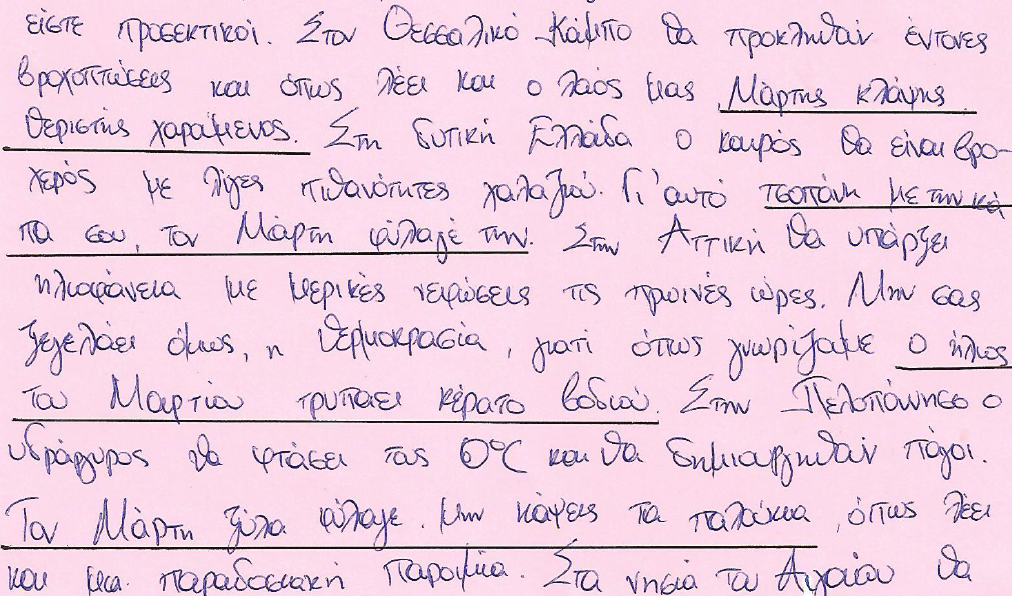 είστε προσεκτικοί. Στον Θεσσαλικό Κάμπο θα προκληθούν έντονες
βροχοπτώσεις και όπως λέει και ο λαός μας Μάρτης κλάψης
θεριστής χαράμενος. Στη δυτική Ελλάδα ο καιρός θα είναι βρο-
χερός με λίγες πιθανότητες χαλαζιού. Γι'αυτό τσοπάνη με την κά
πα σου, τον Μάρτη φύλαγέ την. Στην Αττική θα υπάρξει
ηλιοφάνεια με μερικές νεφώσεις τις πρωινές ώρες. Μην σας
ξεγελάει όμως, η θερμοκρασία, γιατί όπως γνωρίζουμε ο ήλιος
του Μαρτίου τρυπάει κέρατο βοδιού. Στην Πελοπόννησο ο
υδράργυρος θα φτάσει τους 0°C και θα δημιουργηθούν πάγοι.
Τον Μάρτη ξύλα φύλαγε. μην κάψεις τα παλούκια, όπως λέει
και μια παραδοσιακή παροιμία. Στα νησιά του Αιγαίου θα